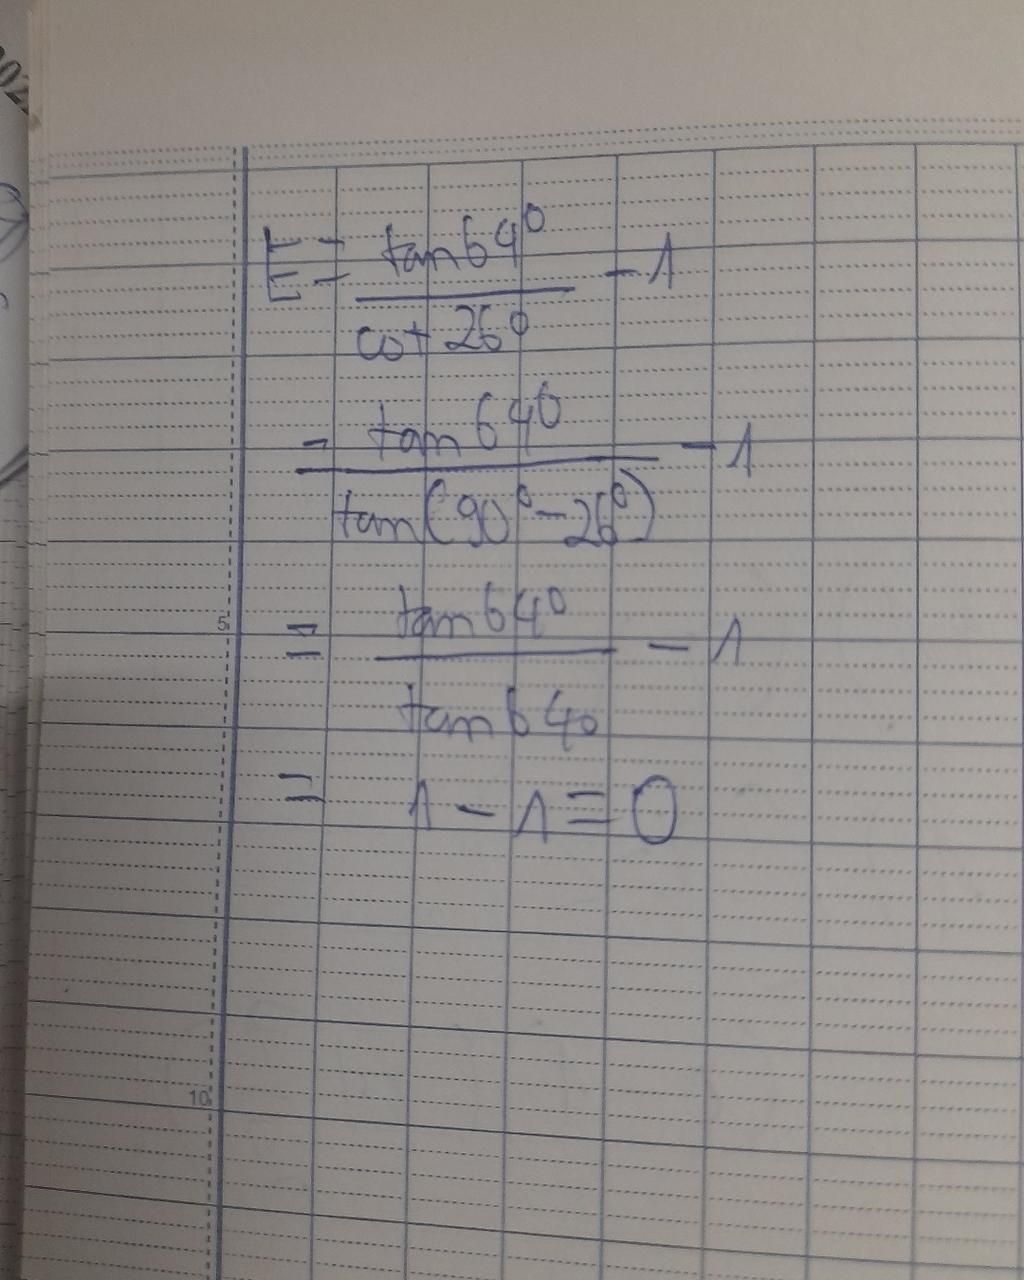 E = tan64° / cot 26° - 1
= tan 64° / tan(90° - 26°) - 1
= tan 64° / tan 64° - 1
= 1 - 1 = 0
5
10